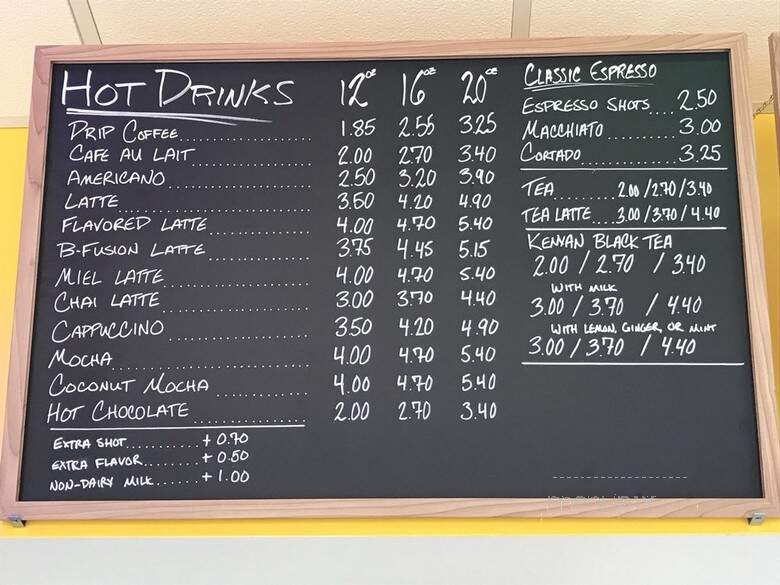 HOT DRINKS 12oz 16oz 20oz
DRIP COFFEE 1.85 2.55 3.25
CAFE AU LAIT 2.00 2.70 3.40
AMERICANO 2.50 3.20 3.90
LATTE 3.50 4.20 4.90
FLAVORED LATTE 4.00 4.70 5.40
B-FUSION LATTE 3.75 4.45 5.15
MIEL LATTE 4.00 4.70 5.40
CHAI LATTE 3.00 3.70 4.40
CAPPUCCINO 3.50 4.20 4.90
MOCHA 4.00 4.70 5.40
COCONUT MOCHA 4.00 4.70 5.40
HOT CHOCOLATE 2.00 2.70 3.40
EXTRA SHOT + 0.70
EXTRA FLAVOR + 0.50
NON-DAIRY MILK + 1.00
CLASSIC ESPRESSO
ESPRESSO SHOTS 2.50
MACCHIATO 3.00
CORTADO 3.25
TEA 2.00/2.70/3.40
TEA LATTE 3.00/3.70/4.40
KENYAN BLACK TEA
2.00 / 2.70 / 3.40
WITH MILK
3.00 / 3.70 / 4.40
WITH LEMON, GINGER, OR MINT
3.00 / 3.70 / 4.40